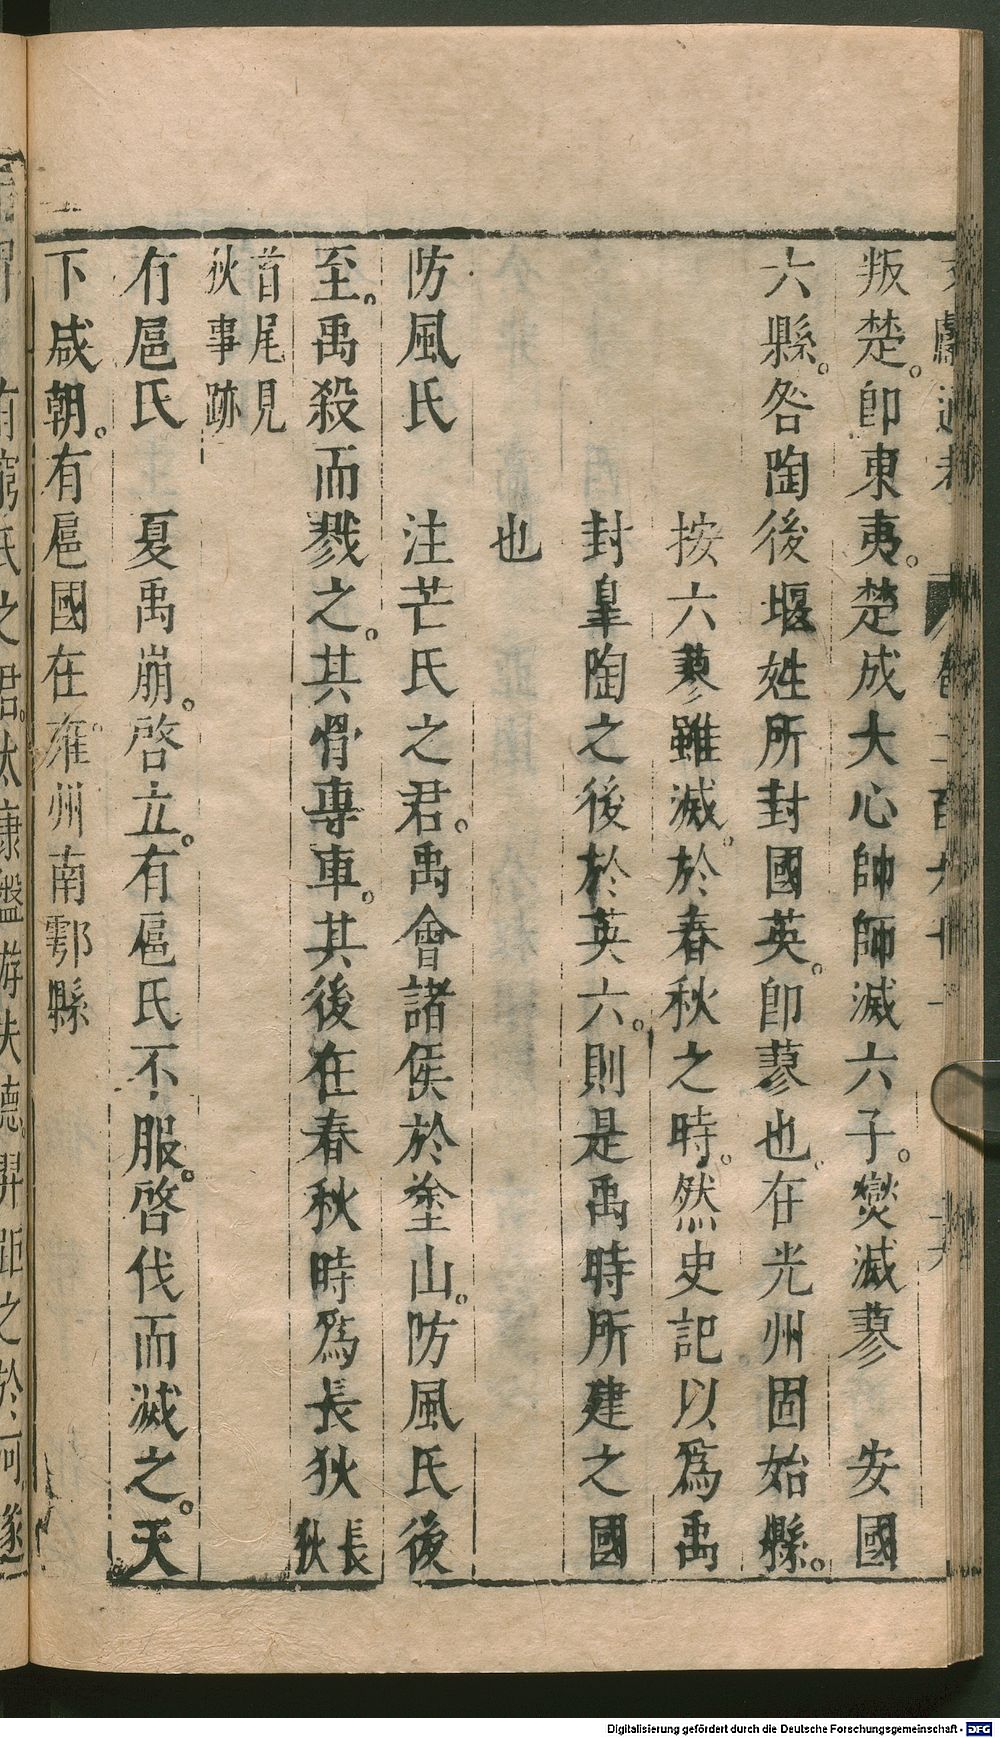 叛楚。卽東夷。楚成大心帥師滅六子。燮滅蓼　安國
六縣。咎陶後堰姓所封國英。卽蓼也。在光州固始縣。
按六蓼雖滅。於春秋之時。然史記以爲禹
封皐陶之後於英六。則是禹時所建之國
也
防風氏　注芒氏之君。禹會諸侯於塗山。防風氏後
至。禹殺而戮之。其骨專車。其後在春秋時爲長狄長狄
首尾見
狄事跡
有扈氏　夏禹崩。啓立。有扈氏不服。啓伐而滅之。天
下咸朝。有扈國在雍州南鄠縣
有窮氏之君。太康盤游失德。羿距之於河。遂
Digitalisierung gefördert durch die Deutsche Forschungsgemeinschaft - DFG